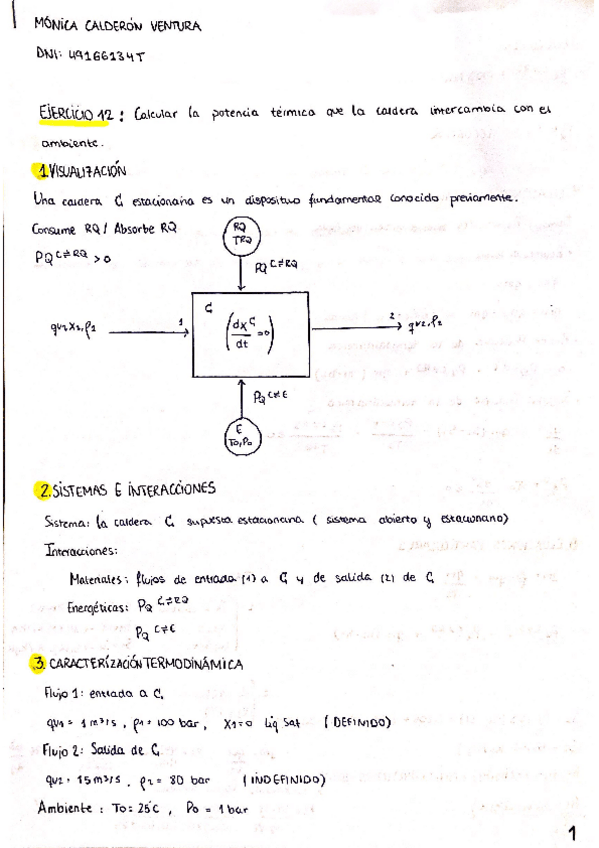 MÓNICA CALDERÓN VENTURA
DNI: 49166134T
EJERCICIO 12: Calcular la potencia térmica que la caldera intercambia con el
ambiente.
1. VISUALIZACIÓN
Una caldera C estacionaria es un dispositivo fundamental conocido previamente.
Consume RQ / Absorbe RQ
RQ
TRQ
PQ C⇌RQ > 0
PQ C⇌RQ
C
qv1, X1, p1
1
(dX^C/dt = 0)
2
qv2, p2
PQ C⇌E
E
To, Po
2. SISTEMAS E INTERACCIONES
Sistema: la caldera C supuesta estacionaria ( sistema abierto y estacionario)
Interacciones:
Materiales: flujos de entrada (1) a C y de salida (2) de C
Energéticas: PQ C⇌RQ
PQ C⇌E
3. CARACTERIZACIÓN TERMODINÁMICA
Flujo 1: entrada a C
qv1 = 1 m³/s, p1 = 100 bar, X1=0 Liq Sat (DEFINIDO)
Flujo 2: Salida de C
qv2 = 15 m³/s, p2 = 80 bar (INDEFINIDO)
Ambiente: To = 25°C, Po = 1 bar
1